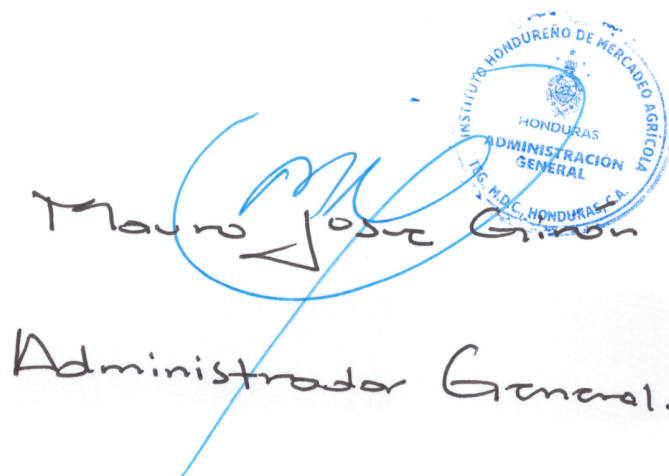 INSTITUTO HONDUREÑO DE MERCADEO AGRÍCOLA
HONDURAS
ADMINISTRACIÓN
GENERAL
TEG. M.D.C., HONDURAS, C.A.
Mauro José Girón
Administrador General.